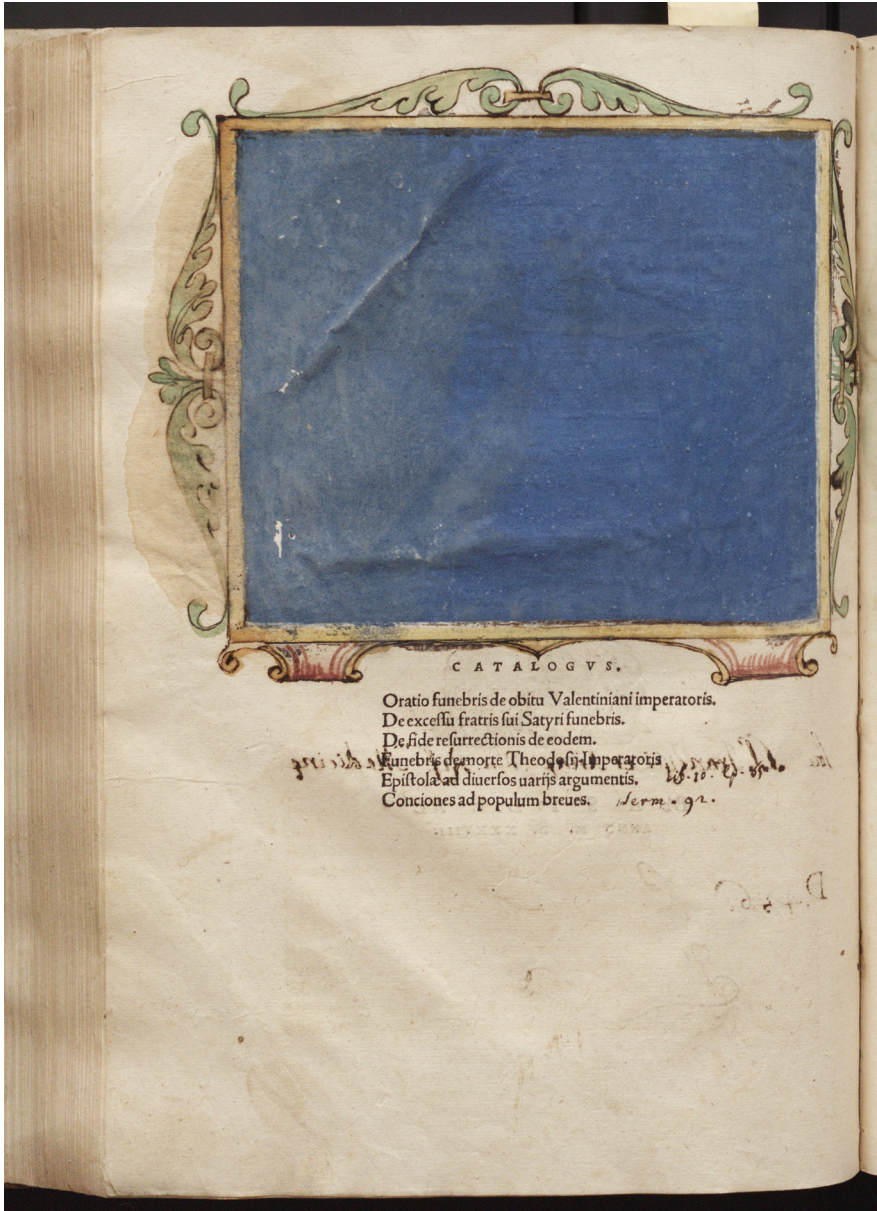 CATALOGVS.
Oratio funebris de obitu Valentiniani imperatoris.
De excessu fratris sui Satyri funebris.
De fide resurrectionis de eodem.
Funebris de morte Theodosij Imperatoris
Epistolæ ad diuersos uarijs argumentis.
Conciones ad populum breues. serm. 92.